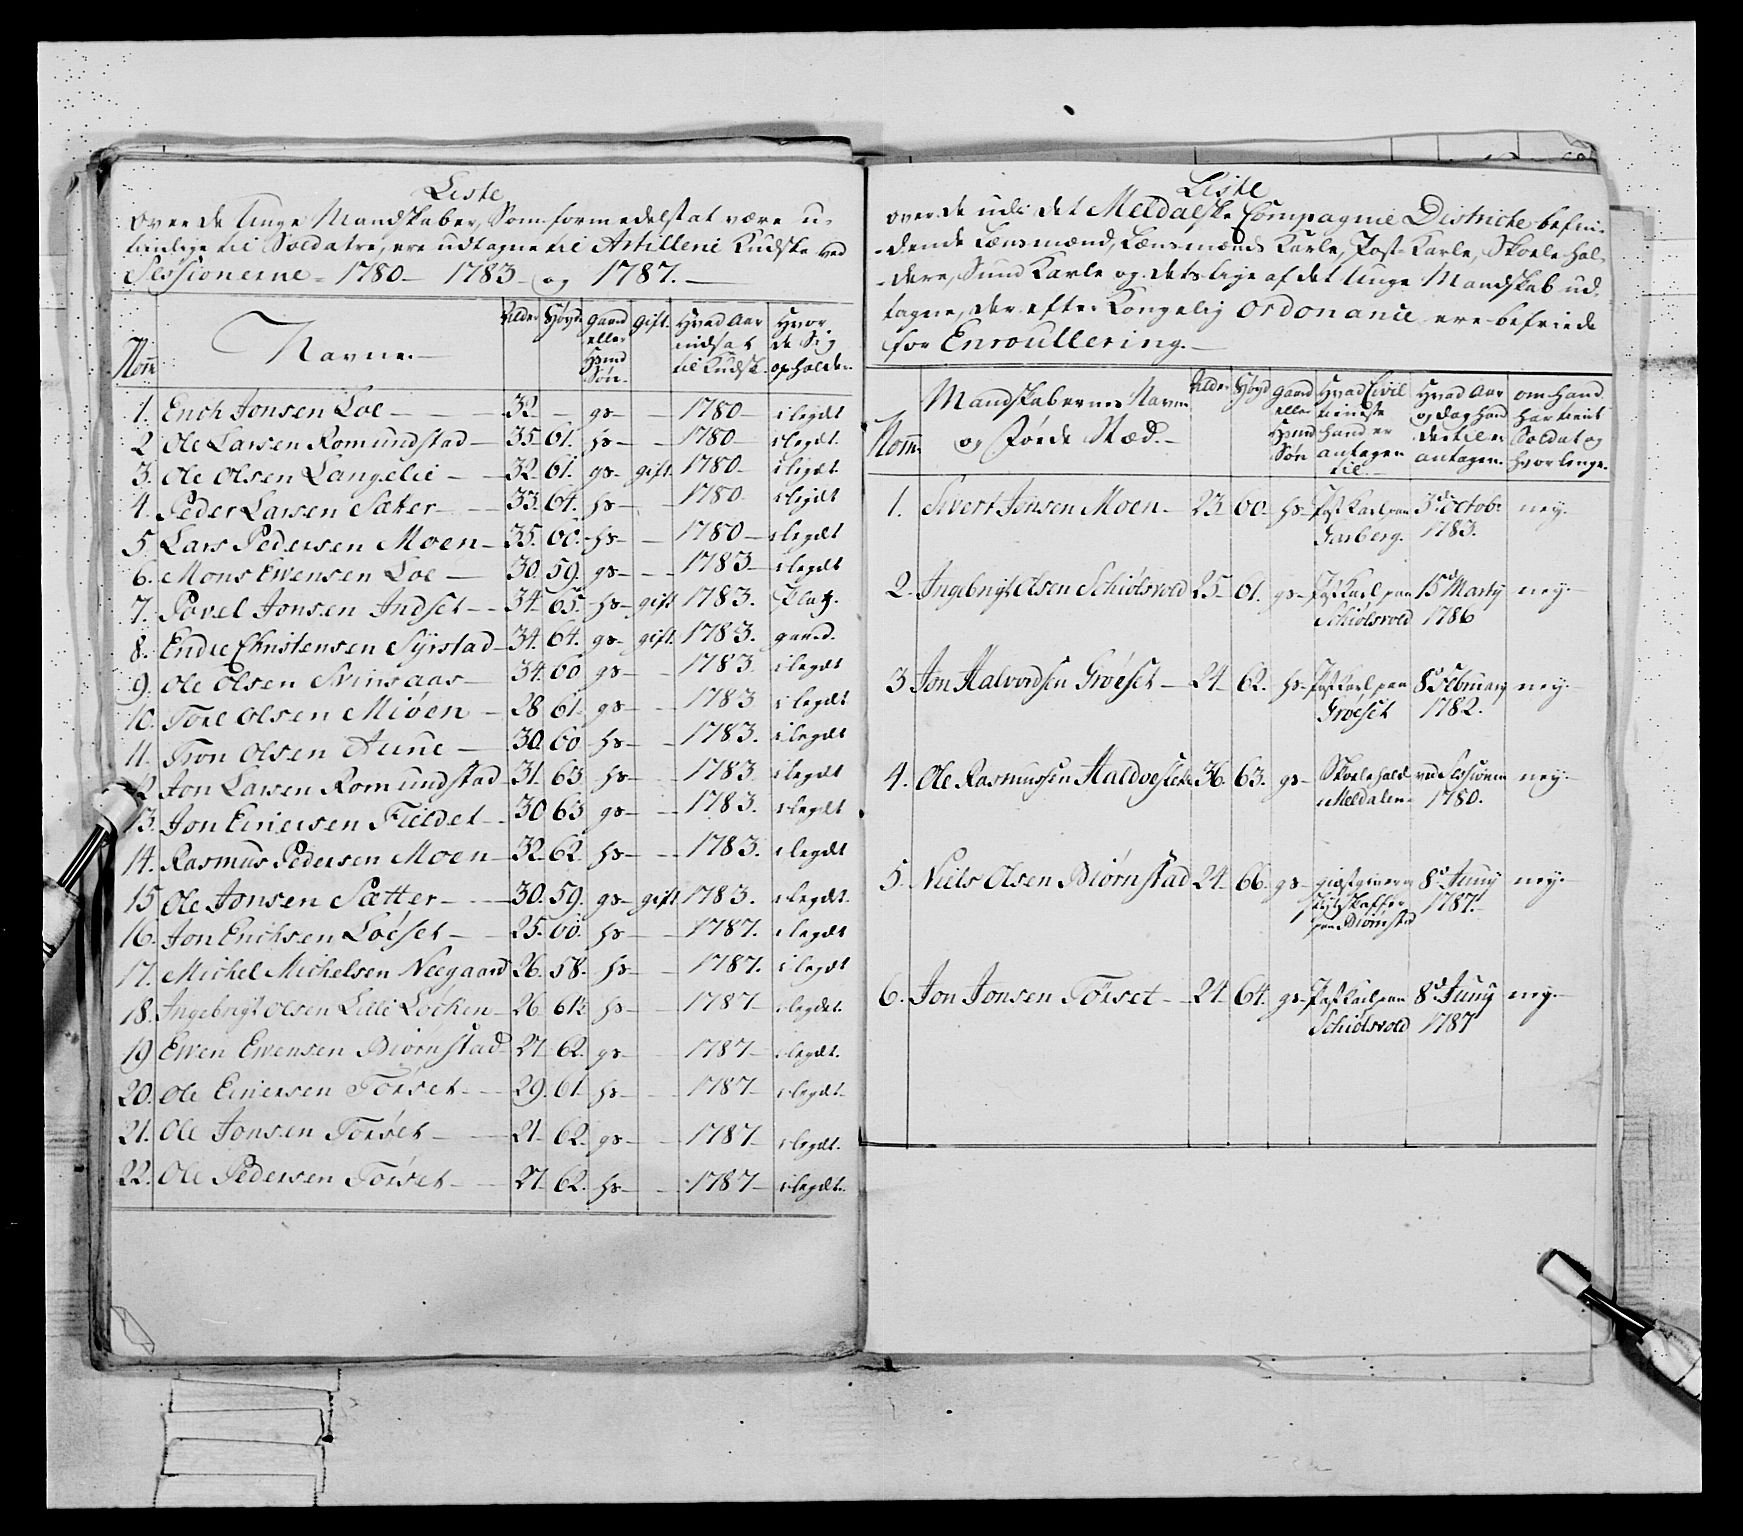 Liste
over de unge Mandskaber, Som formedelst at være u-
tienlige til Soldatre, ere udtagne til Artillerie Kudske ved
Sessionerne 1780 1783 og 1787.
Nom Navne. Alder Høyde gaard eller Huusmd Søn. gift. Hvad Aar indsat til Kudsk Hvor de Sig opholder.
1. Erich Jonsen Loe 32 gs 1780 i legdt
2 Ole Larsen Romundstad 35 61. hs 1780 i legdt.
3. Ole Olsen Langelie 32 61. gs gift 1780 i legdt
4. Peder Larsen Sæter 33. 64. hs 1780. i legdt
5. Lars Pedersen Moen 35. 60. hs 1780 i legdt
6. Mons Ewensen Loe 30 59. gs 1783 i legdt
7. Povel Jonsen Indset 34. 65. hs gift 1783. Platz.
8. Endre Christensen Syrstad 34. 64. gs gift. 1783. gaard.
9. Ole Olsen Svinsaas 34. 60 gs 1783. i legdt
10. Tore Olsen Miøen 28 61. gs 1783 i legdt
11. Tron Olsen Aune 30. 60 hs 1783. i legdt
12 Jon Larsen Romundstad 31. 63 hs 1783 i legdt
13. Jon Einersen Fieldet 30 63 gs 1783. i legdt
14. Rasmus Pedersen Moen 32 62. hs 1783. i legdt
15 Ole Jonsen Sætter 30. 59. gs gift 1783. i legdt.
16. Jon Erichsen Løeset 25. 60. hs 1787. i legdt
17. Michel Michelsen Neegaard 26. 58. hs 1787. i legdt
18. Ingebrigt Olsen Lille Løcken 26 61½ hs 1787 i legdet.
19 Ewen Ewensen Biørnstad 27 62. gs 1787 i legdt.
20. Ole Einersen Torset 29. 61. hs 1787 i legdt.
21. Ole Jonsen Torset 21 62. gs 1787 i legdt.
22. Ole Pedersen Torset 27 62. hs 1787 i legdt.
Liste
over de udi det Meldalske Compagnie Districte befin-
dende Lænsmænd, Lænsmænds Karle, Post-Karle, Skoele-hol-
dere, Sund Karle og detslige af det unge Mandskab ud-
tagne, der efter Kongelig Ordonance ere befriede
for Enroullering.
Nom. Mandskabernes Navne og Føde Stæd. Alder Høyd Gaard eller Huusmd Søn Hvad Civil tieneste hand er antagen til Hvad Aar og dag hand dertil er antagen. om hand har tient Soldat og hvor lenge.
1. Sivert Jonsen Moen 23 60. hs Post Karl paa Garberg. 3de Octobr 1783. ney.
2. Ingebrigt Olsen Schiølsvold 25. 61. gs Post Karl paa Schiølsvold 15d Marty 1786 ney.
3 Jon Halvordsen Grøeset 24. 62. hs Post Karl paa Grøeset 8d February 1782. ney.
4. Ole Rasmussen 36. 63. gs Skoeleholdr i Meldalen ved Sessionen 1780. ney.
5. Niels Olsen Biørnstad 24. 66. gs giæstgiver og Skydskaffer paa Biørnstad 8d Juny 1787. ney.
6. Jon Jonsen Torset 21 64. gs Post Karl paa Schiølsvold 8d Juny 1787 ney.